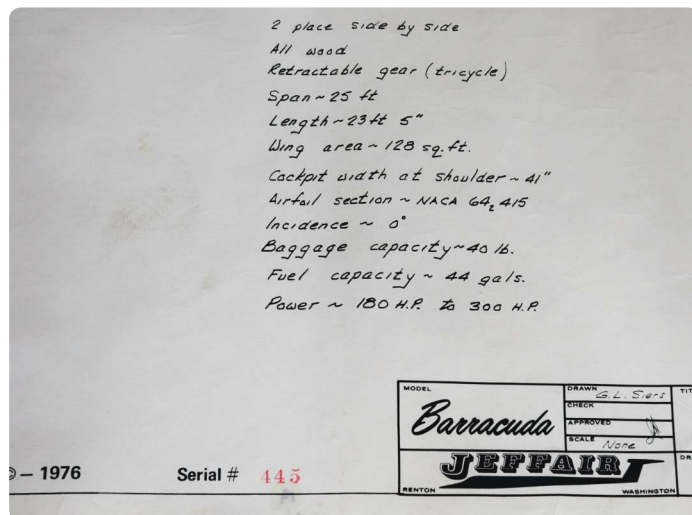 2 place side by side
All wood
Retractable gear (tricycle)
Span ~ 25 ft
Length ~ 23 ft 5"
Wing area ~ 128 sq. ft.
Cockpit width at shoulder ~ 41"
Airfoil section ~ NACA 64₂ 415
Incidence ~ 0°
Baggage capacity ~ 40 lb.
Fuel capacity ~ 44 gals.
Power ~ 180 H.P. to 300 H.P.
MODEL
Barracuda
DRAWN G. L. Siers
CHECK
APPROVED
SCALE None
JEFFAIR
RENTON WASHINGTON
– 1976
Serial # 445